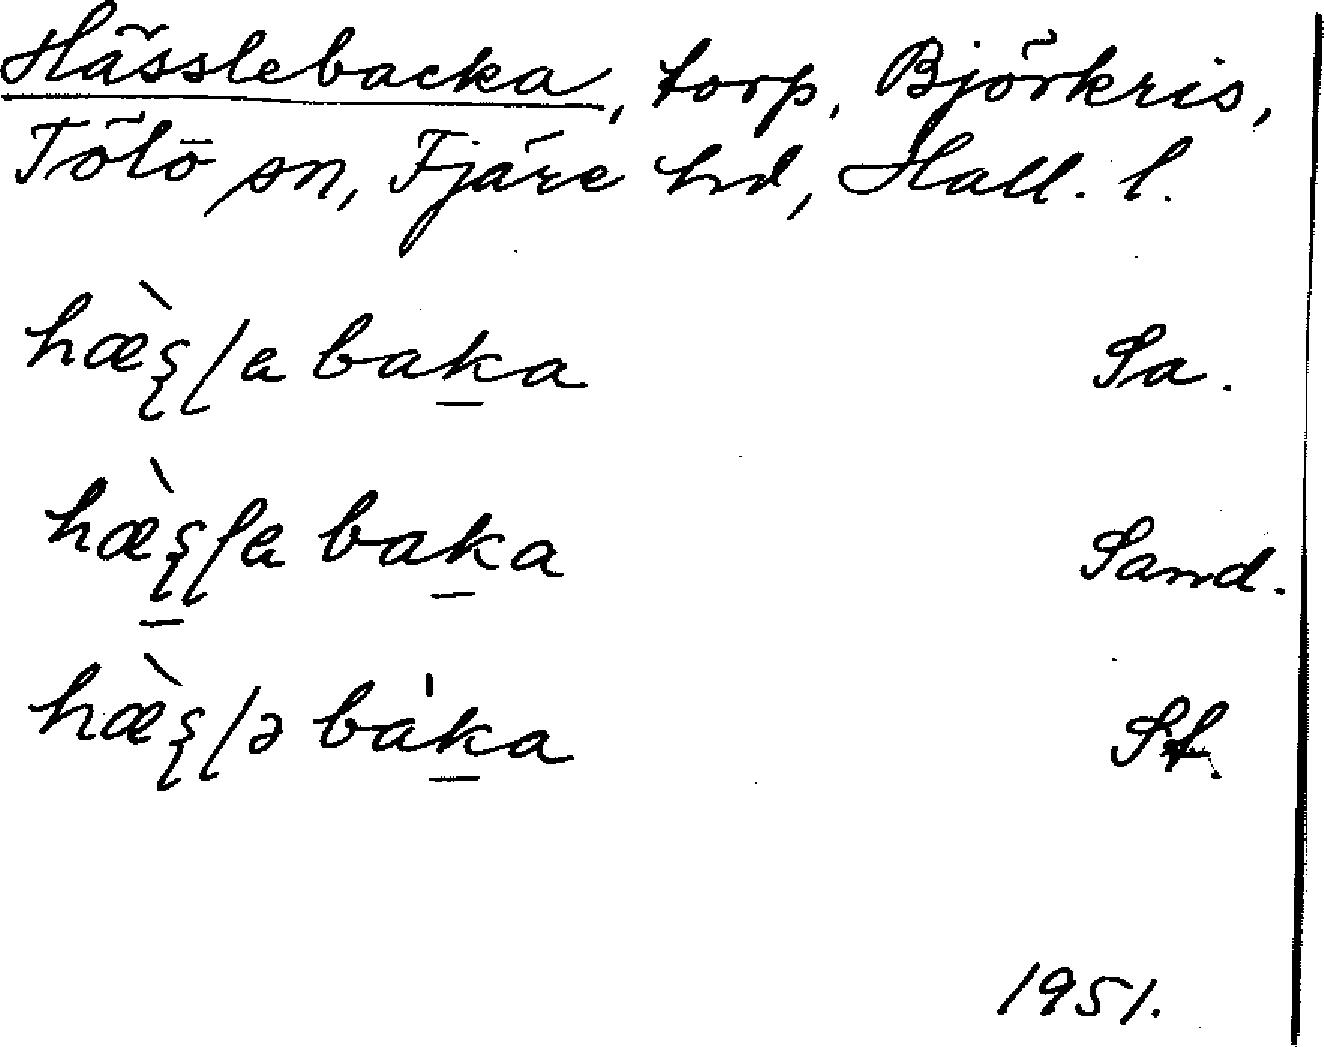 Hässlebacka, torp, Björkris,
Tölö sn, Fjäre hd, Hall. l.
hæ̀ʂɭa baḵa Sa.
hæ̀ʂ̱ɭa baḵa Sand.
hæ̀ʂɭə ba̍ḵa St.
1951.